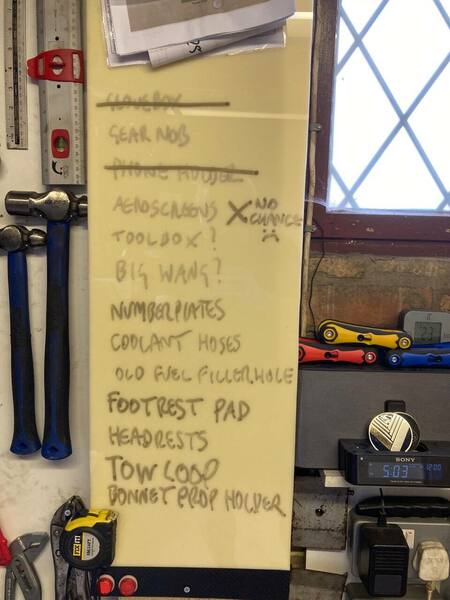 GLOVEBOX
GEAR NOB
PHONE HOLDER
AEROSCREENS X NO CHANCE
TOOLBOX?
BIG WANG?
NUMBERPLATES
COOLANT HOSES
OLD FUEL FILLERHOLE
FOOTREST PAD
HEADRESTS
TOW LOOP
BONNET PROP HOLDER
SONY
5:03